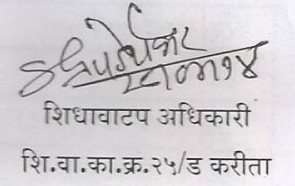 शिधावाटप अधिकारी
शि.वा.का.क्र.२५/ड करीता